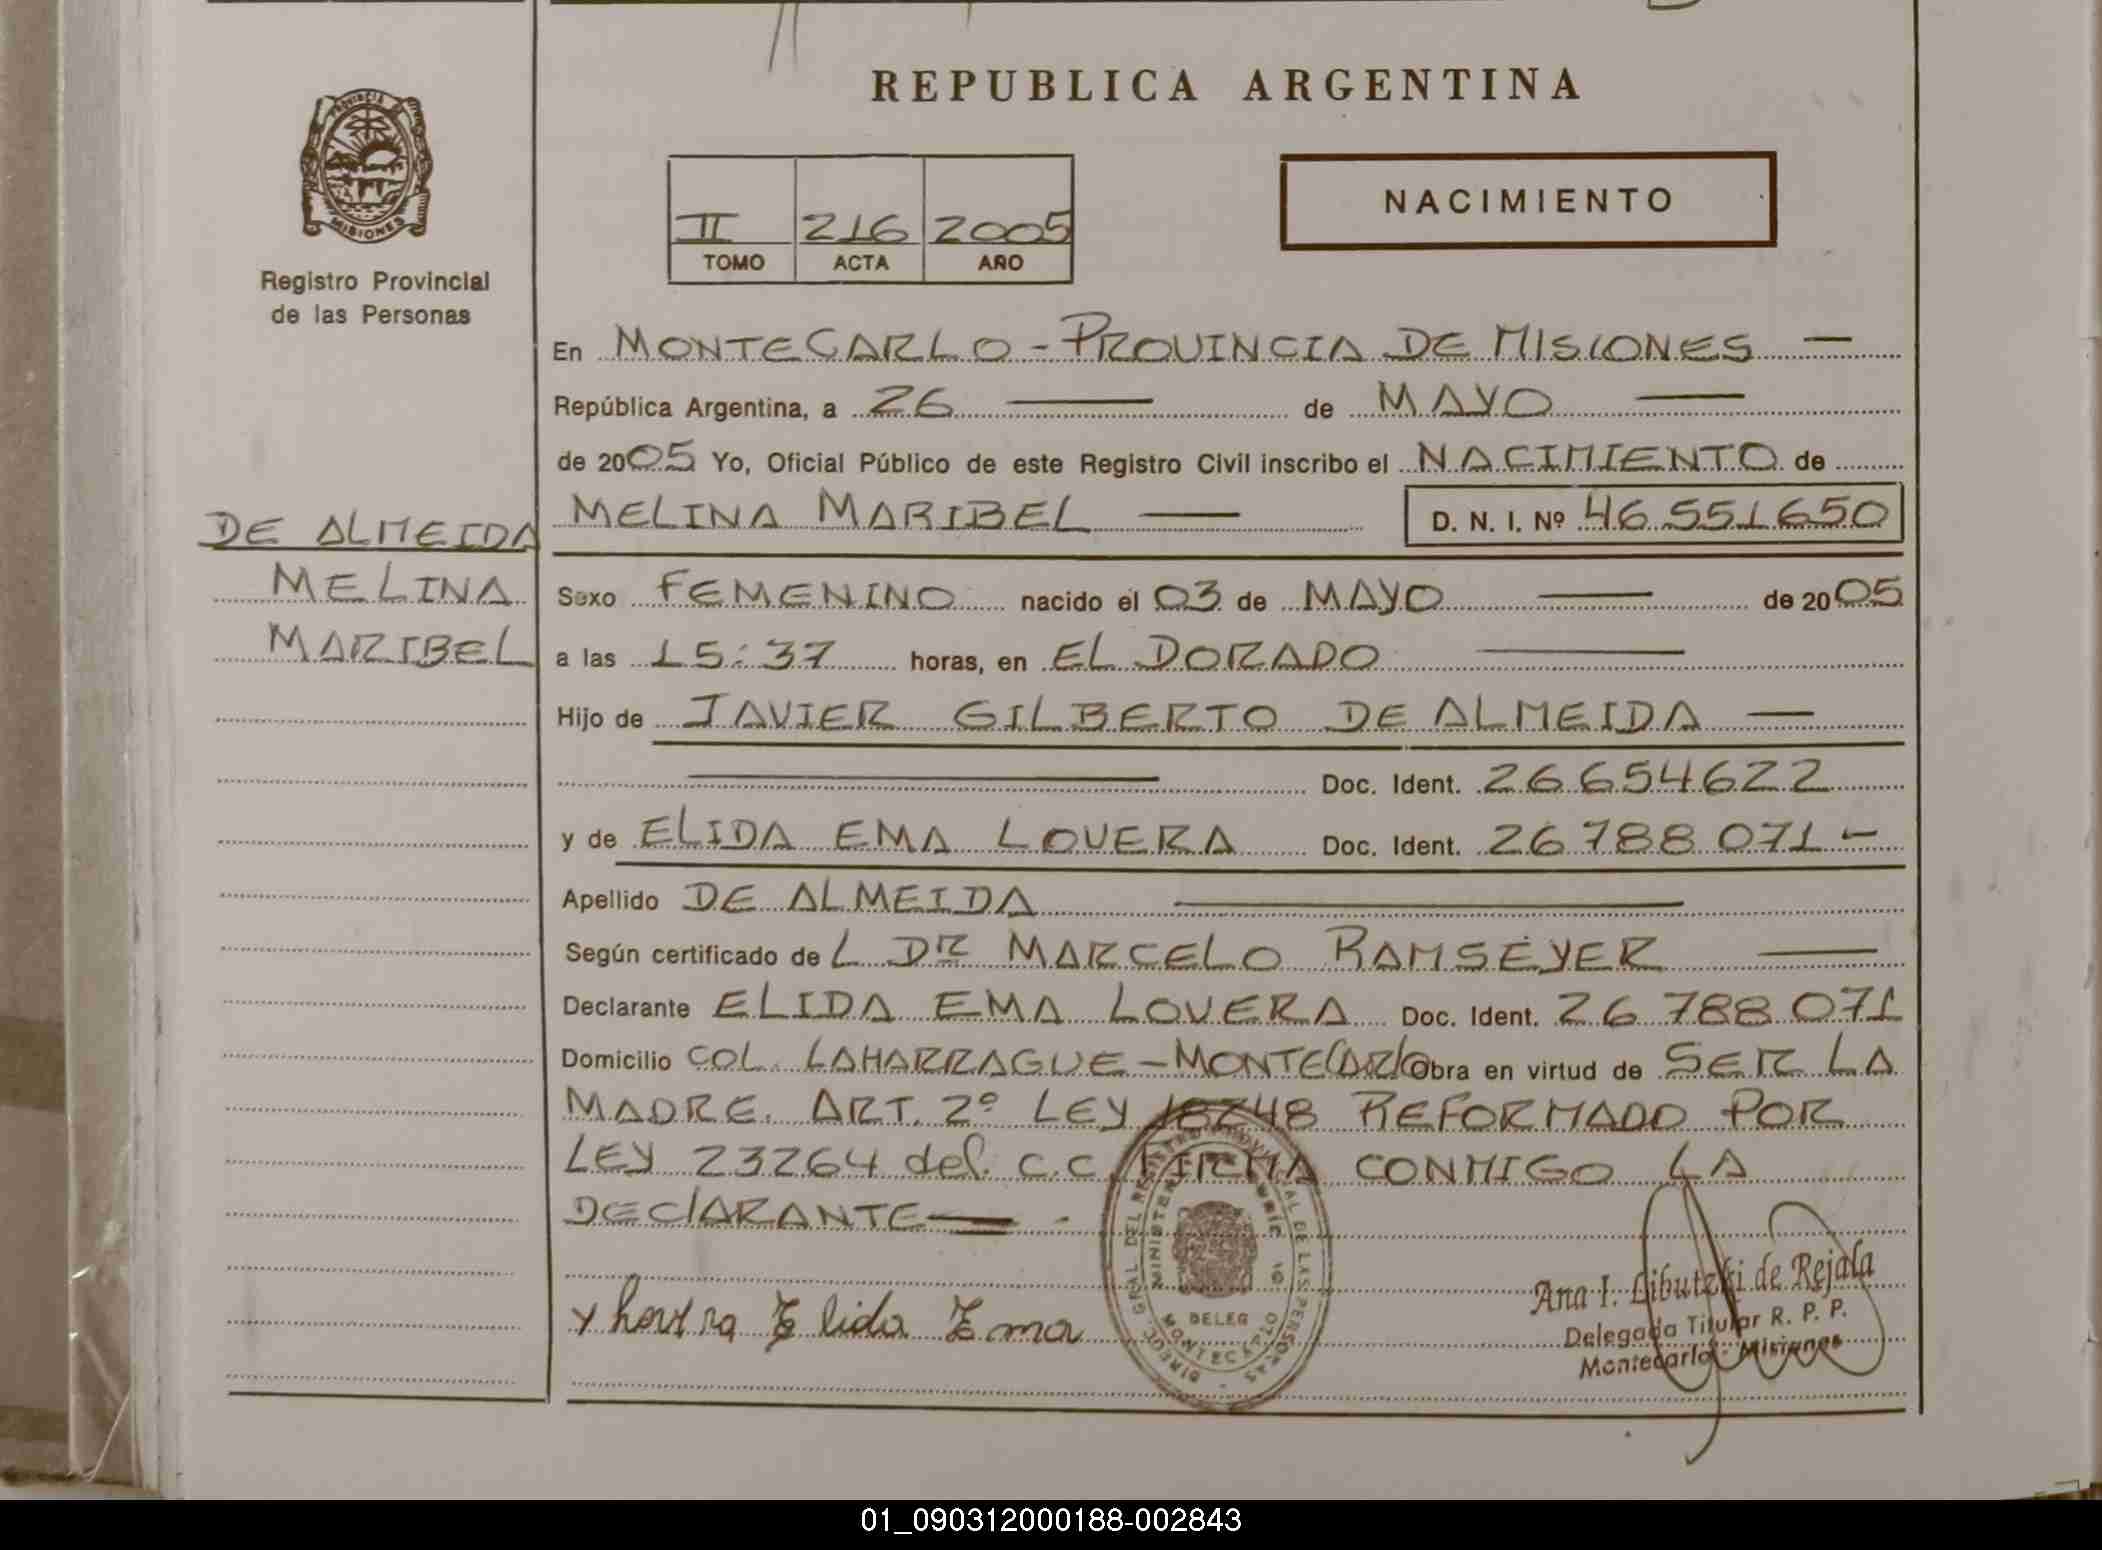 REPUBLICA ARGENTINA
PROVINCIA DE
MISIONES
Registro Provincial
de las Personas
NACIMIENTO
II 216 2005
TOMO ACTA AÑO
En MONTECARLO - PROVINCIA DE MISIONES —
República Argentina, a 26 — de MAYO —
de 2005 Yo, Oficial Público de este Registro Civil inscribo el NACIMIENTO de
MELINA MARIBEL — D. N. I. Nº 46 551650
DE ALMEIDA
MELINA
MARIBEL
Sexo FEMENINO nacido el 03 de MAYO — de 2005
a las 15:37 horas, en EL DORADO —
Hijo de JAVIER GILBERTO DE ALMEIDA —
— Doc. Ident. 26654622
y de ELIDA EMA LOVERA Doc. Ident. 26 788 071 -
Apellido DE ALMEIDA —
Según certificado de L DR MARCELO RAMSEYER —
Declarante ELIDA EMA LOVERA Doc. Ident. 26 788 071
Domicilio COL. LAHARRAGUE - MONTECARLO Obra en virtud de SER LA
MADRE. ART. 2º LEY 18248 REFORMADO POR
LEY 23264 del C.C. FIRMA CONMIGO LA
DECLARANTE —
Elida Ema
DELEG
MONTECARLO
Ana I. Libutzki de Rejala
Delegada Titular R. P. P.
Montecarlo - Misiones
01_090312000188-002843